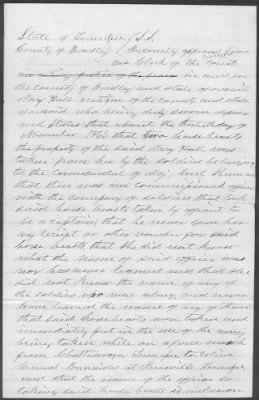 State of Tennessee, S.S.
County of Bradley } Personally appeared before
me Clerk of the Court
in and for
the County of Bradley and State aforesaid
Mary Hall a citizen of the County and State
aforesaid who being duly sworn deposes
and states that about the day of
November 1863 that two horse beasts
the property of the said Mary Hall was
taken from her by the soldiers belonging
to the command of Maj. Genl Sherman
that there was one commissioned officer
with the company of soldiers that took
said horse beasts taken by appeared to
be a captain, that he never gave her
any receipt or other voucher for said
horse beasts, that she did not know
what the name of said officer was
nor has never learned and that she
did not know the name of any of
the soldiers also along and never
have learned the name of any of them
that said horse beasts was taken and
immediately put in the use of the army
being taken while on a forced march
from Chattanooga Tennessee to relieve
General Burnside at Knoxville Tennessee
and that the name of the officer so
taking said horse beasts is unknown